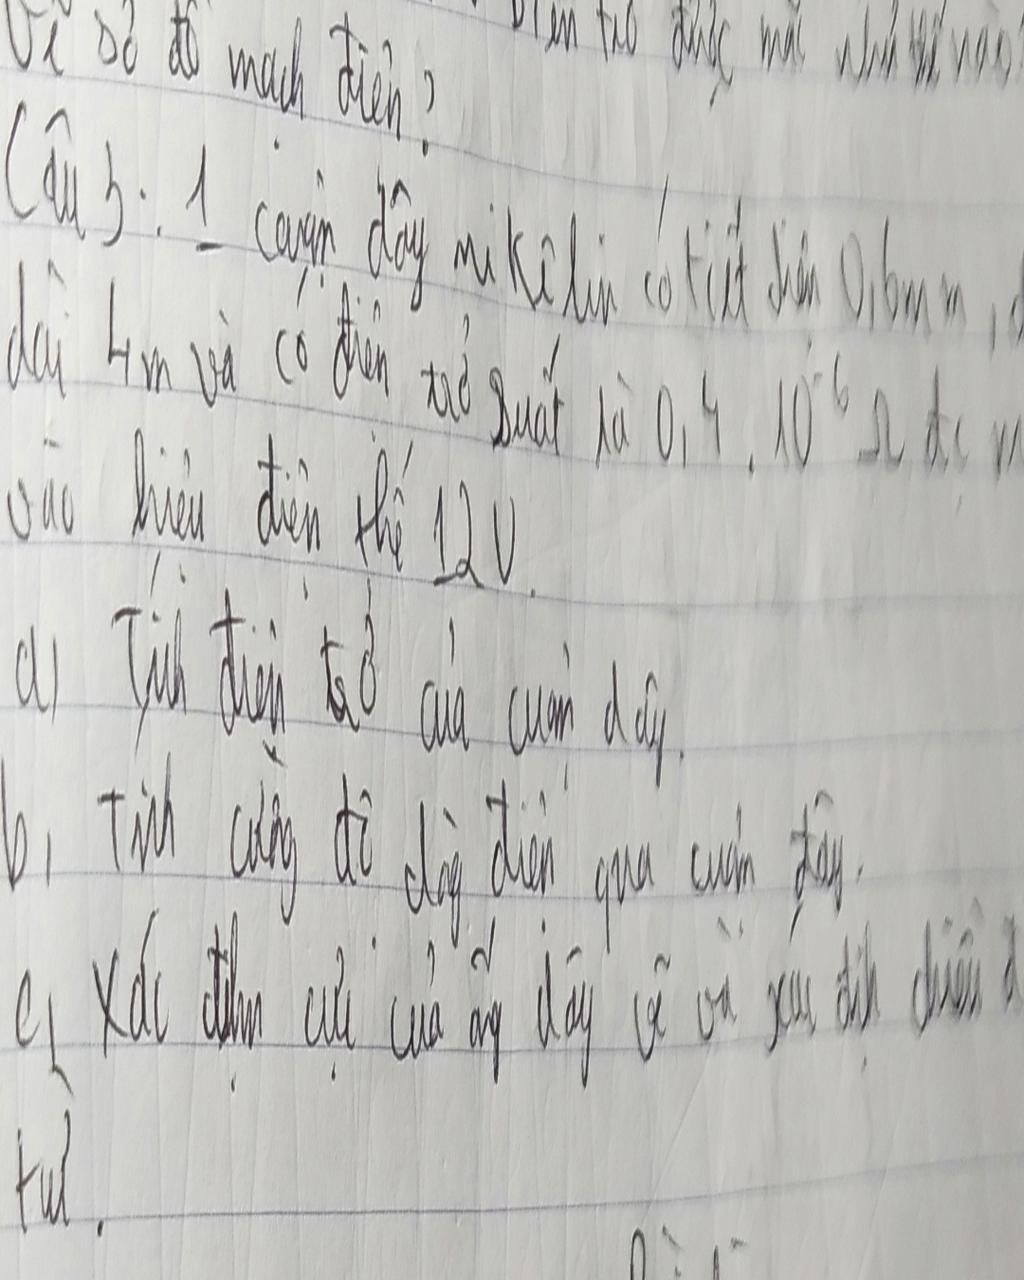 Vẽ sơ đồ mạch điện? Điện trở được mắc như thế nào?
Câu 3: 1 cuộn dây nikêlin có tiết diện 0,6mm,
dài 4m và có điện trở suất là 0,4.10⁻⁶ Ω đc m
vào hiệu điện thế 12V.
a, Tính điện trở của cuộn dây.
b, Tính cường độ dòng điện qua cuộn dây.
c, Xác định cực của ống dây vẽ và xác định chiều đ
từ.